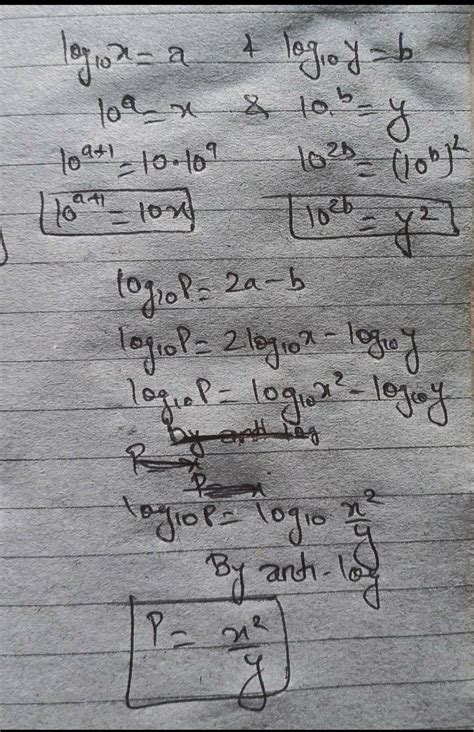 log₁₀x = a & log₁₀y = b
10ᵃ = x & 10.ᵇ = y
10ᵃ⁺¹ = 10·10ᵃ 10²ᵇ = (10ᵇ)²
10ᵃ⁺¹ = 10x 10²ᵇ = y²
log₁₀P = 2a - b
log₁₀P = 2log₁₀x - log₁₀y
log₁₀P = log₁₀x² - log₁₀y
By anti log
P
P = x
log₁₀P = log₁₀ x²/y
By anti-log
P = x²/y